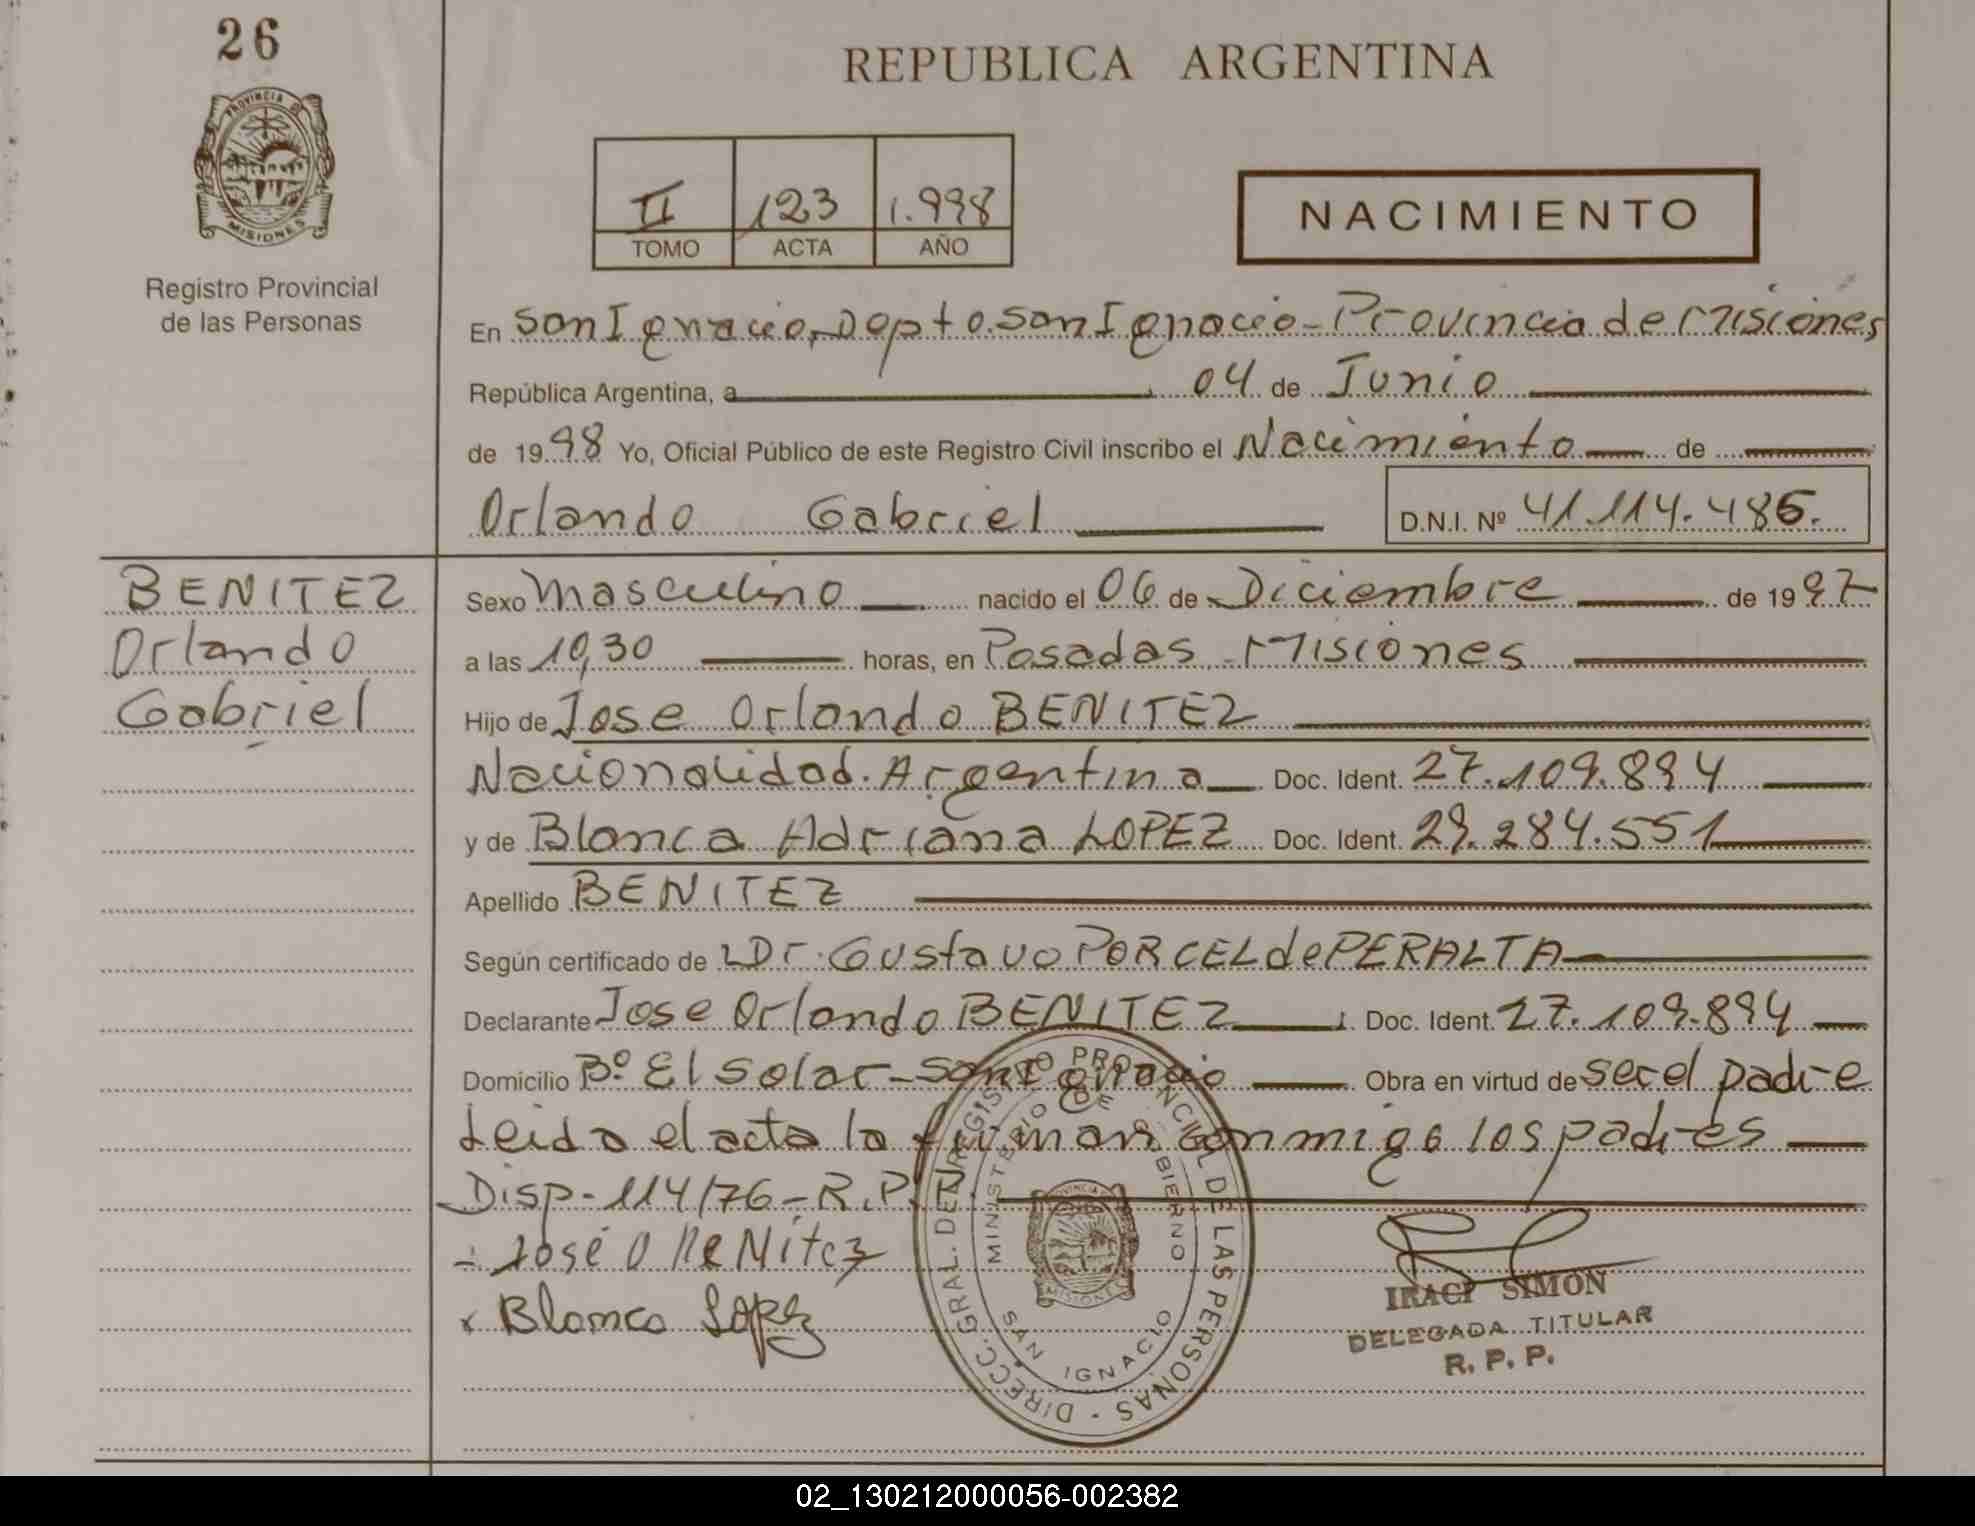 26
PROVINCIA DE
MISIONES
Registro Provincial
de las Personas
REPUBLICA ARGENTINA
II 123 1.998
TOMO ACTA AÑO
NACIMIENTO
En San Ignacio, Depto. San Ignacio - Provincia de Misiones
República Argentina, a 04 de Junio
de 1998 Yo, Oficial Público de este Registro Civil inscribo el Nacimiento de
Orlando Gabriel D.N.I. Nº 41.114.486.
BENITEZ
Orlando
Gabriel
Sexo Masculino nacido el 06 de Diciembre de 1997
a las 10,30 horas, en Posadas - Misiones
Hijo de Jose Orlando BENITEZ
Nacionalidad. Argentina Doc. Ident. 27.109.894
y de Blanca Adriana LOPEZ Doc. Ident. 29.284.551
Apellido BENITEZ
Según certificado de Dr. Gustavo PORCEL de PERALTA
Declarante Jose Orlando BENITEZ Doc. Ident. 27.109.894
Domicilio Bº El Solar - San Ignacio Obra en virtud de ser el padre
Leida el acta la firman conmigo los padres
Disp - 114/76 - R.P.
José O BeNítez
x Blanca Lopez
DIRECC. GRAL. DEL REGISTRO PROVINCIAL DE LAS PERSONAS -
MINISTERIO DE GOBIERNO
SAN IGNACIO
MISIONES
IRACI SIMON
DELEGADA TITULAR
R. P. P.
02_130212000056-002382